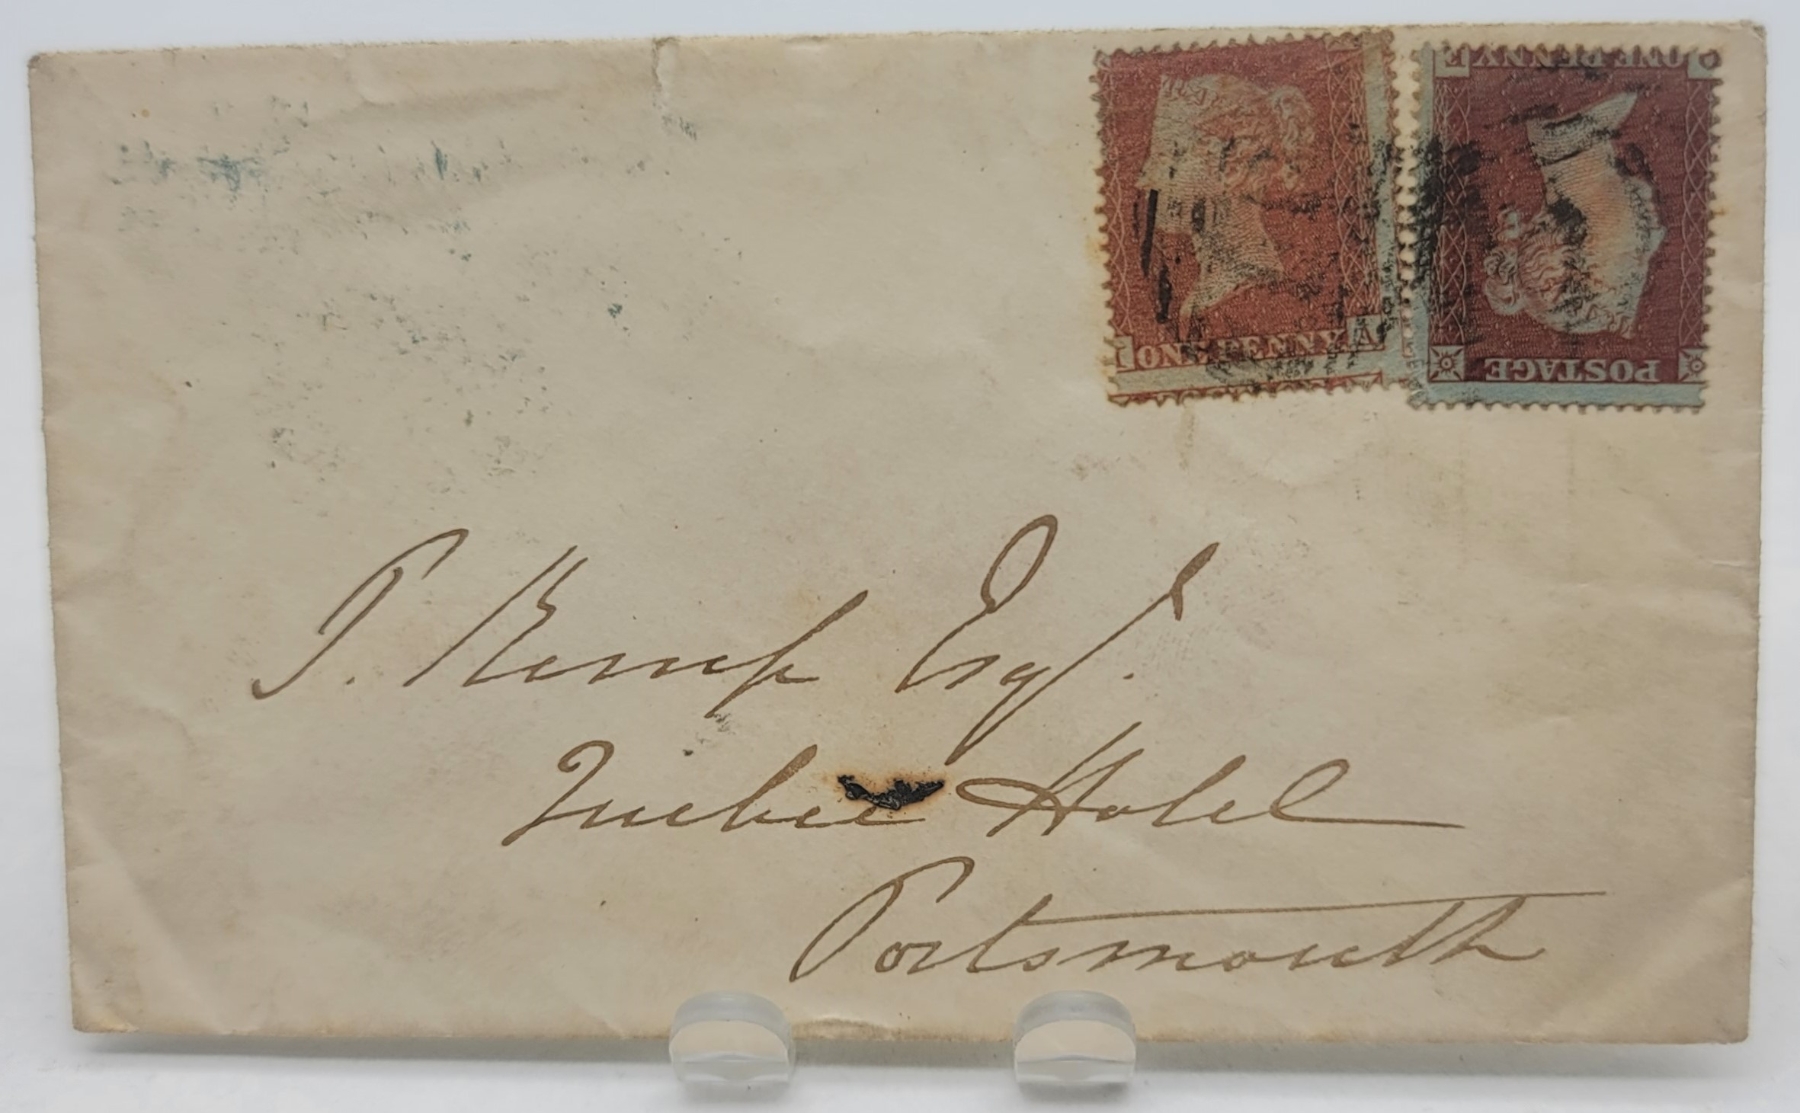 ONE PENNY
ONE PENNY
POSTAGE
T. Kemp Esqr.
Quebec Hotel
Portsmouth